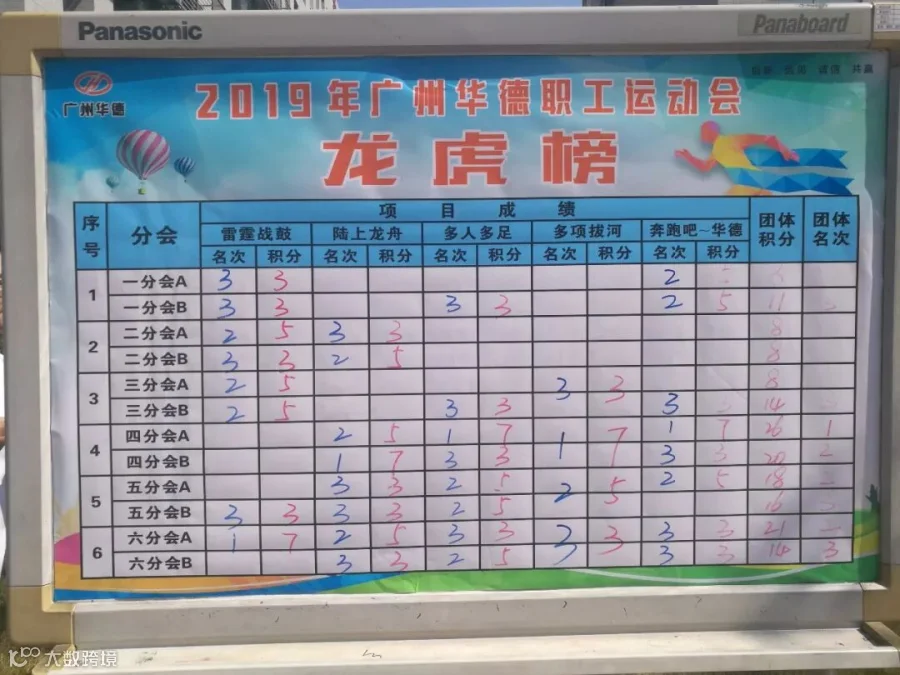 Panasonic
Panaboard
广州华德
共赢
2019年广州华德职工运动会
龙虎榜
序号 分会 项目成绩 团体积分 团体名次
雷霆战鼓 陆上龙舟 多人多足 多项拔河 奔跑吧~华德
名次 积分 名次 积分 名次 积分 名次 积分 名次 积分
1 一分会A 3 3 2
一分会B 3 3 3 3 2 5 11
2 二分会A 2 5 3 3 8
二分会B 3 3 2 5 8
3 三分会A 2 5 3 3 8
三分会B 2 5 3 3 3 14
4 四分会A 2 5 1 7 1 7 1 7 26 1
四分会B 1 7 3 3 3 3 20 2
5 五分会A 3 3 2 5 2 5 2 5 18
五分会B 3 3 3 3 2 5 16
6 六分会A 1 7 2 5 3 3 3 3 3 3 21
六分会B 3 3 2 5 3 3 14 3
大数跨境